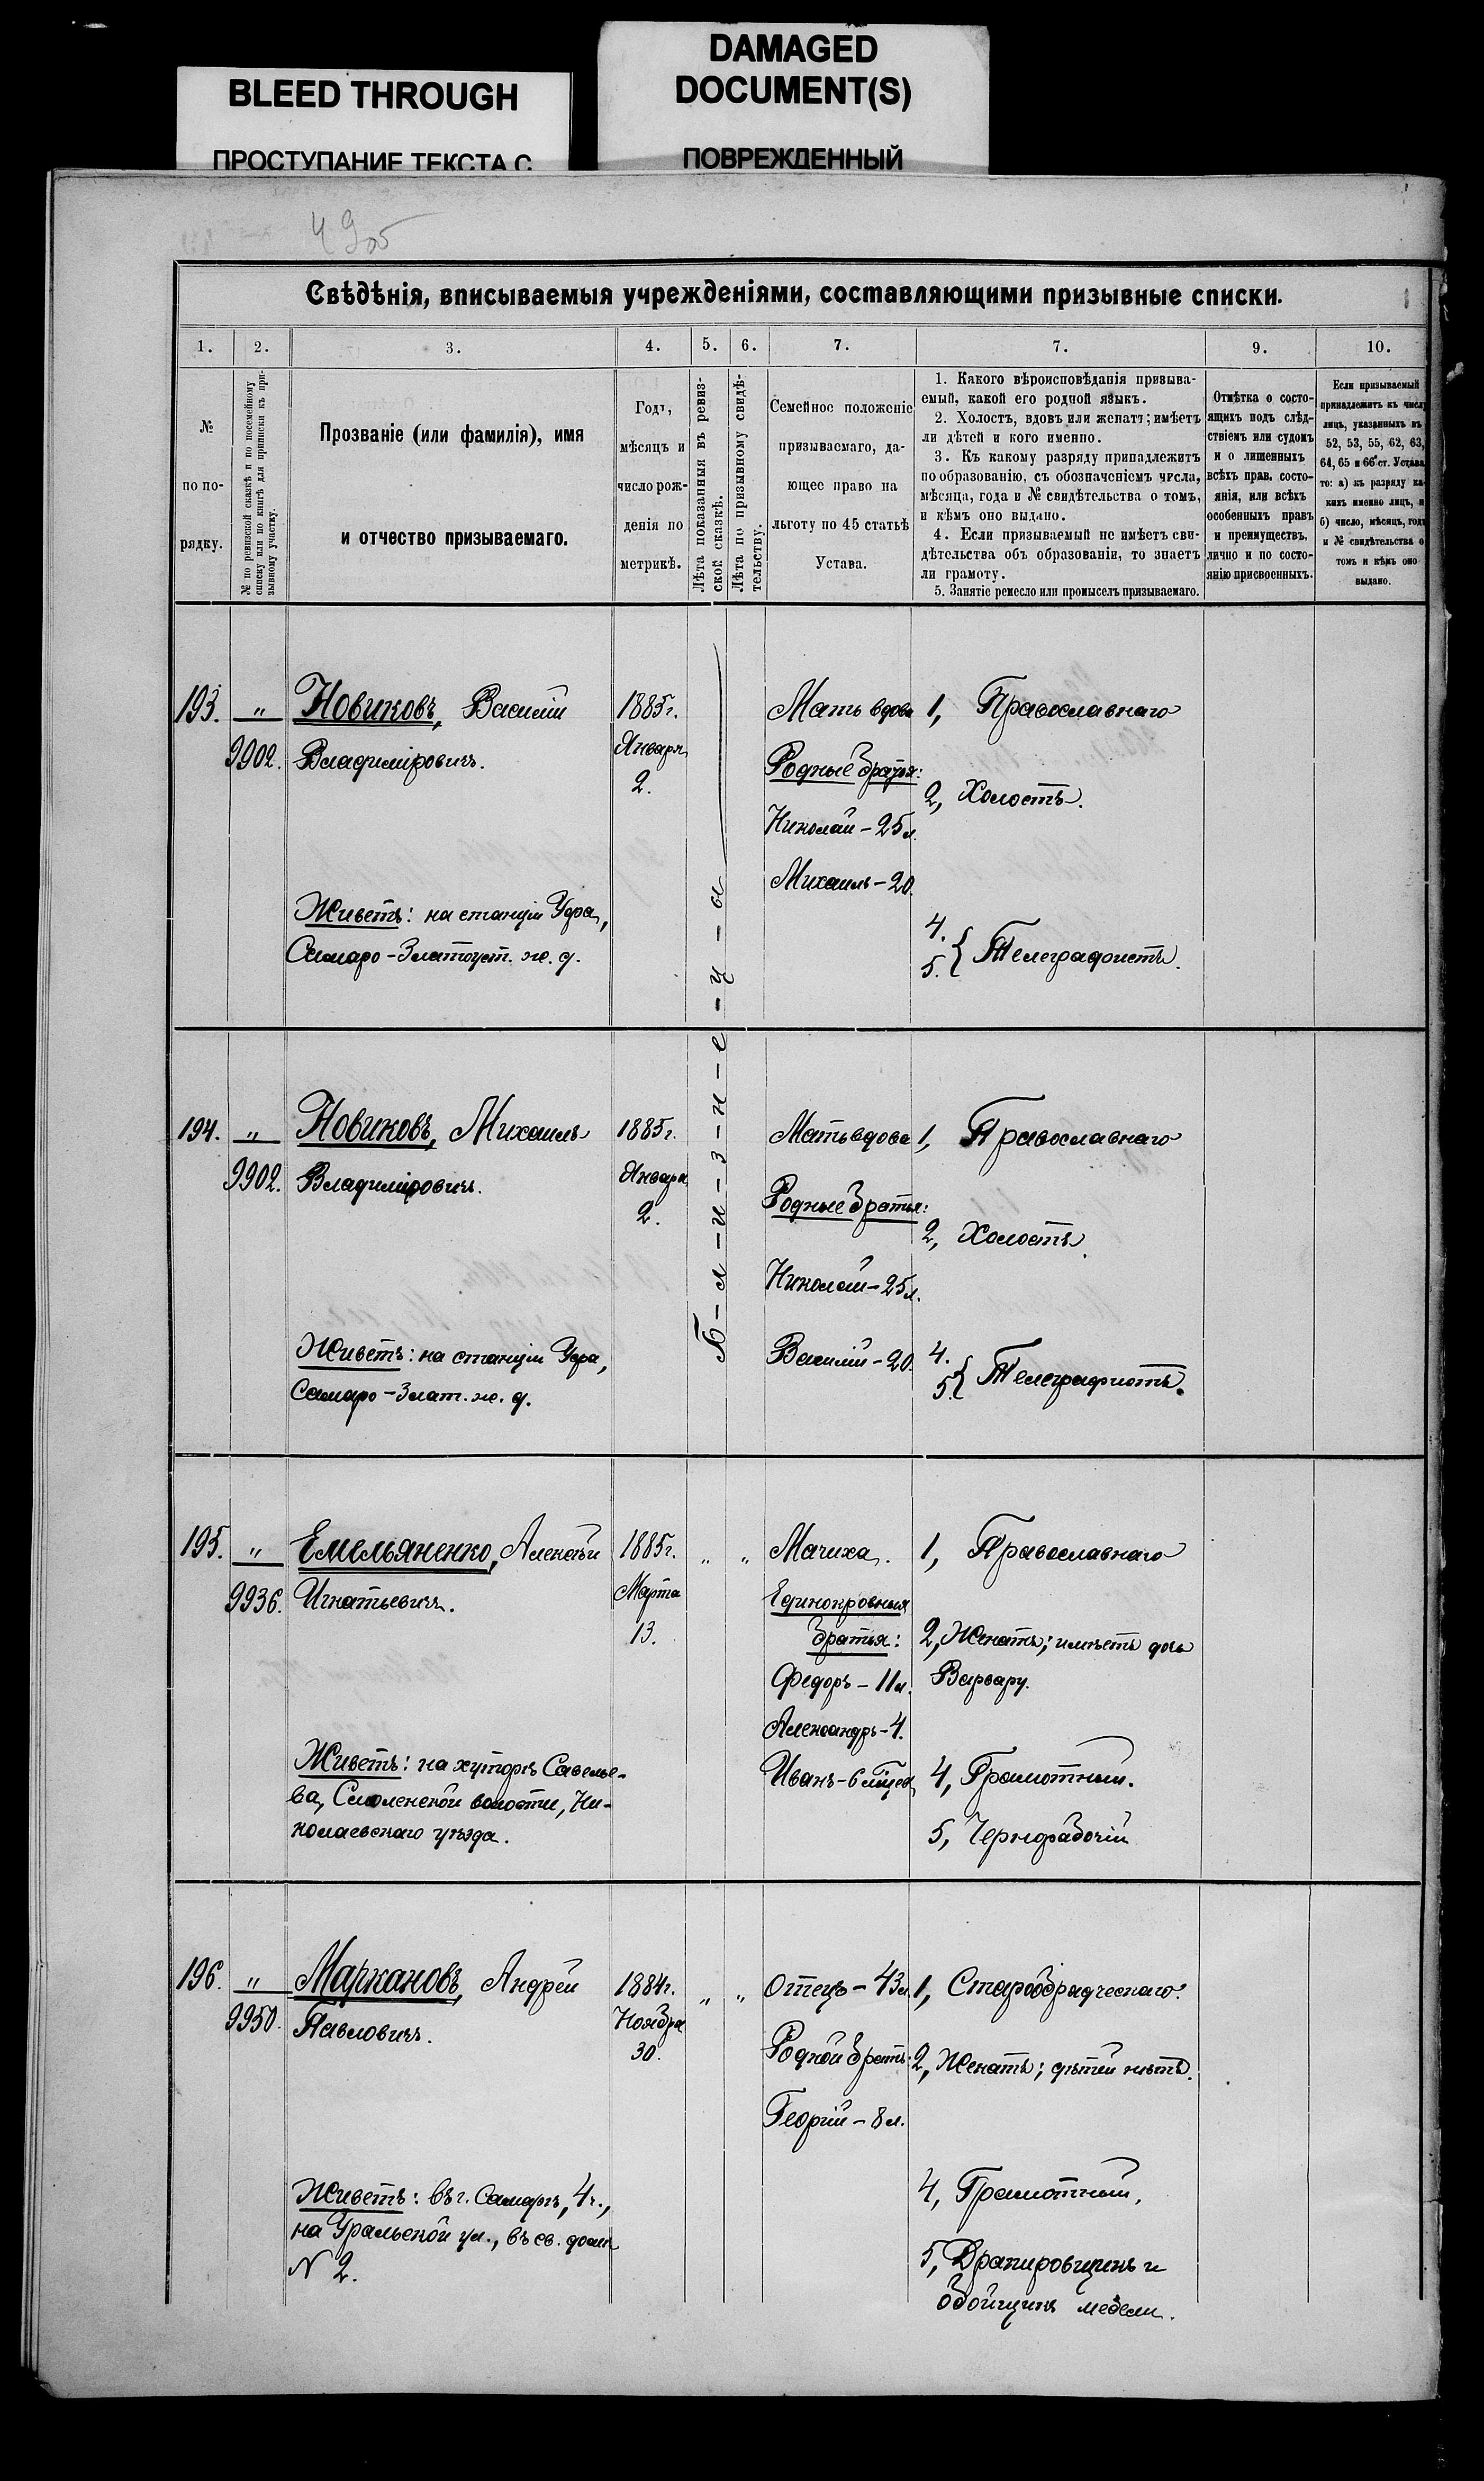 BLEED THROUGH
ПРОСТУПАНИЕ ТЕКСТА С
DAMAGED
DOCUMENT(S)
ПОВРЕЖДЕННЫЙ
4905
Свѣдѣнія, вписываемыя учрежденіями, составляющими призывные списки.
1. 2. 3. 4. 5. 6. 7. 7. 9. 10.
№
по по-
рядку.
№ по ревизской сказкѣ и по посемейному
списку или по книгѣ для приписки къ при-
зывному участку.
Прозваніе (или фамилія), имя
и отчество призываемаго.
Годъ,
мѣсяцъ и
число рож-
денія по
метрикѣ.
Лѣта показанныя въ ревиз-
ской сказкѣ.
Лѣта по призывному свидѣ-
тельству.
Семейное положеніе
призываемаго, да-
ющее право на
льготу по 45 статьѣ
Устава.
1. Какого вѣроисповѣданія призыва-
емый, какой его родной языкъ.
2. Холостъ, вдовъ или женатъ; имѣетъ
ли дѣтей и кого именно.
3. Къ какому разряду принадлежитъ
по образованію, съ обозначеніемъ числа,
мѣсяца, года и № свидѣтельства о томъ,
и кѣмъ оно выдано.
4. Если призываемый не имѣетъ сви-
дѣтельства объ образованіи, то знаетъ
ли грамоту.
5. Занятіе ремесло или промыселъ призываемаго.
Отмѣтка о состо-
ящихъ подъ слѣд-
ствіемъ или судомъ
и о лишенныхъ
всѣхъ прав. состо-
янія, или всѣхъ
особенныхъ правъ
и преимуществъ,
лично и по состо-
янію присвоенныхъ.
Если призываемый
принадлежитъ къ числу
лицъ, указанныхъ въ
52, 53, 55, 62, 63,
64, 65 и 66 ст. Устава
то: а) къ разряду ка-
кихъ именно лицъ, и
б) число, мѣсяцъ, годъ
и № свидѣтельства о
томъ и кѣмъ оно
выдано.
193. " 9902.
Новиковъ, Василій
Владиміровичъ.
Живетъ: на станціи Уфа,
Самаро-Златоуст. ж. д.
1885 г.
Января
2.
Б-л-и-з-н-е-ц-ы
Мать вдова
Родные братья:
Николай - 25 л.
Михаилъ - 20.
1, Православнаго
2, Холостъ.
4.
5. { Телеграфистъ.
194. " 9902.
Новиковъ, Михаилъ
Владиміровичъ.
Живетъ: на станціи Уфа,
Самаро-Злат. ж. д.
1885 г.
Января
2.
Мать вдова
Родные братья:
Николай - 25 л.
Василій - 20.
1, Православнаго
2, Холостъ.
4.
5. { Телеграфистъ.
195. " 9936.
Емельяненко, Алексѣй
Игнатьевичъ.
Живетъ: на хуторѣ Савелье-
ва, Смоленской волости, Ни-
колаевскаго уѣзда.
1885 г.
Марта
13.
" "
Мачиха.
Единокровныя
братья:
Федоръ - 11 л.
Александръ - 4.
Иванъ - 6 мѣсяц.
1, Православнаго
2, Женатъ; имѣетъ дочь
Варвару.
4, Грамотный.
5, Чернорабочій
196. " 9950.
Маркановъ, Андрей
Павловичъ.
Живетъ: въ г. Самарѣ, 4 ч.,
на Уральской ул., въ св. домѣ
N 2.
1884 г.
Ноября
30.
" "
Отецъ - 43 л.
Родной братъ:
Георгій - 8 л.
1, Старообрядческаго.
2, Женатъ; дѣтей нѣтъ.
4, Грамотный.
5, Драпировщикъ и
обойщикъ мебели.